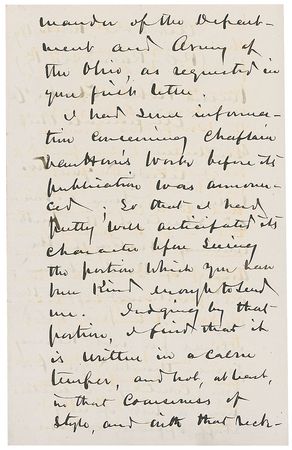 mander of the Depart-
ment and Army of
the Ohio, as requested in
your first letter.
I had some informa-
tion concerning Chaplain
Van Horne's Work before its
publication was announ-
ced; So that I had
pretty well anticipated its
character before seeing
the portion which you have
been Kind enough to send
me. Judging by that
portion, I find that it
is written in a calm
temper, and not, at least,
in that Coarseness of
style, and with that reck-